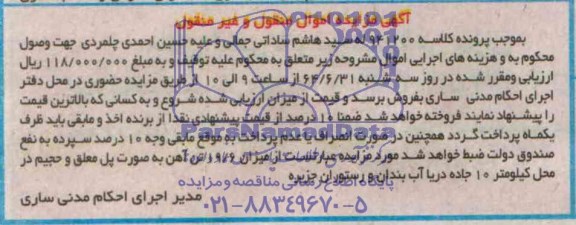 آگهی مزایده اموال منقول و غیر منقول
بموجب پرونده کلاسه 941200 له سید هاشم ساداتی جمالی و علیه حسین احمدی چلمردی جهت وصول
محکوم به و هزینه های اجرایی اموال مشروحه زیر متعلق به محکوم علیه توقیف و به مبلغ 118/000/000 ریال
ارزیابی ومقرر شده در روز سه شنبه 64/6/31 از ساعت 9 الی 10 از طریق مزایده حضوری در محل دفتر
اجرای احکام مدنی ساری بفروش برسد و قیمت از میزان ارزیابی شده شروع و به کسانی که بالاترین قیمت
را پیشنهاد نمایند فروخته خواهد شد ضمنا 10 درصد از قیمت پیشنهادی نقدا از برنده اخذ و مابقی باید ظرف
یکماه پرداخت گردد همچنین در صورت انصراف یا عدم پرداخت به موقع مابقی وجه 10 درصد سپرده به نفع
صندوق دولت ضبط خواهد شد مورد مزایده عبارتست از میزان 19/6 تن آهن به صورت پل معلق و حجیم در
محل کیلومتر 10 جاده دریا آب بندان و رستوران جزیره
مدیر اجرای احکام مدنی ساری
ParsNamadData
پایگاه اطلاع رسانی مناقصه و مزایده
۰۲۱-۸۸۳۴۹۶۷۰-۵